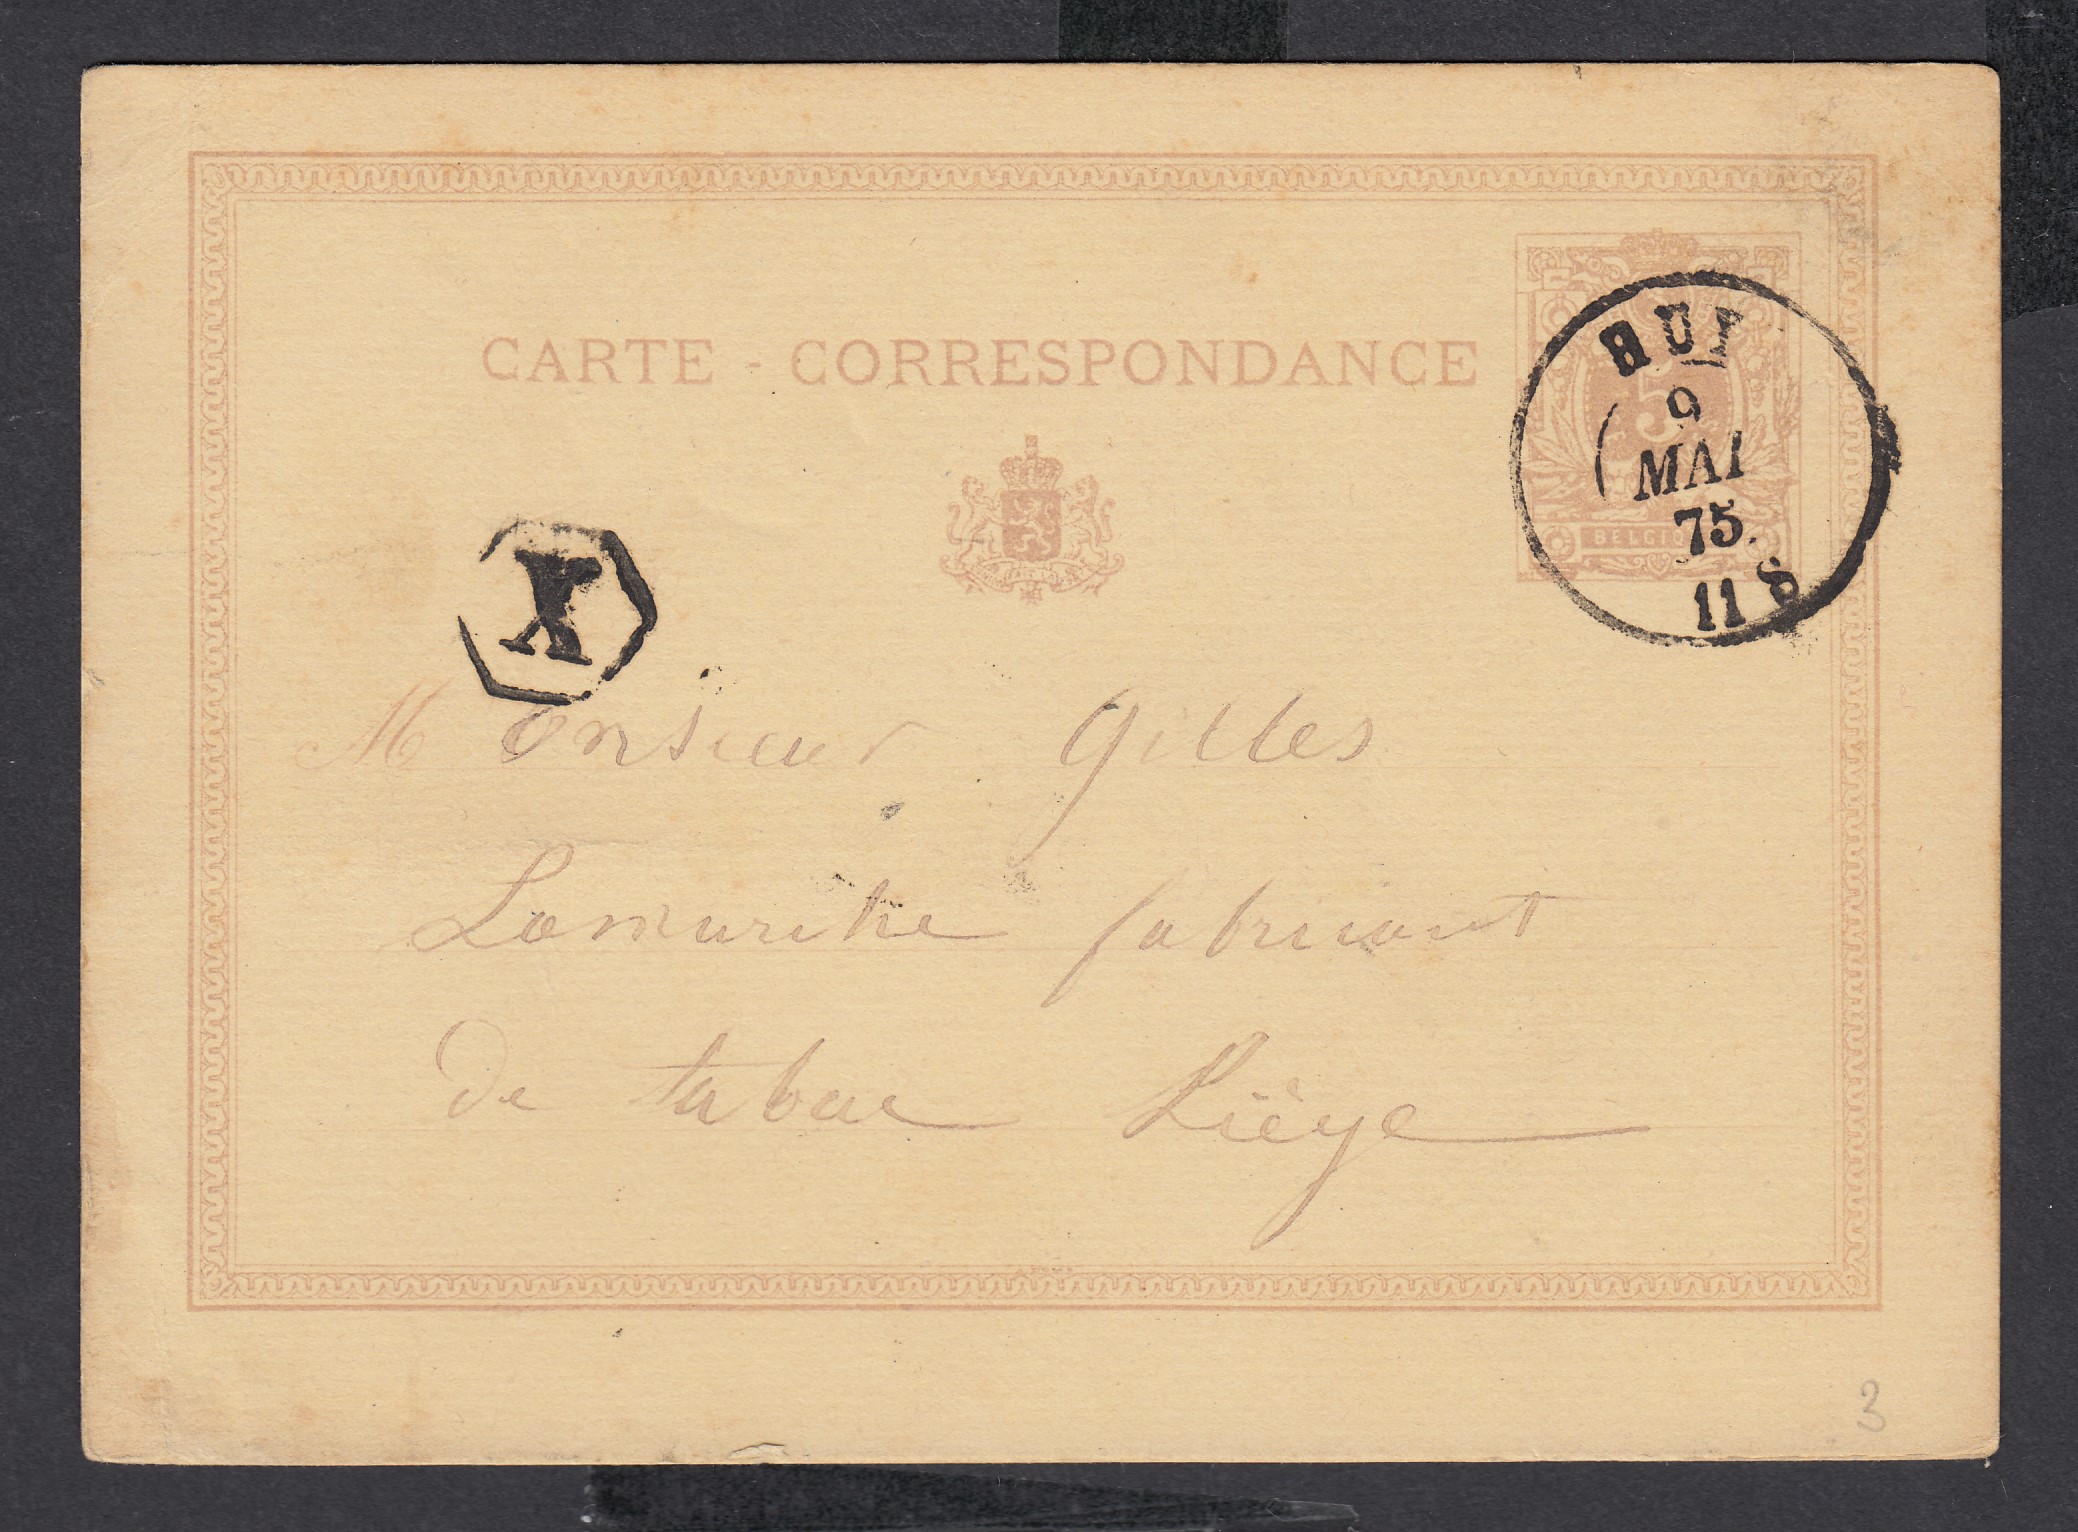 CARTE - CORRESPONDANCE
5
BELGIQ
HUY
9
MAI
75.
11 S
X
Monsieur Gilles
Lamarche fabricant
de tabac Liège
3